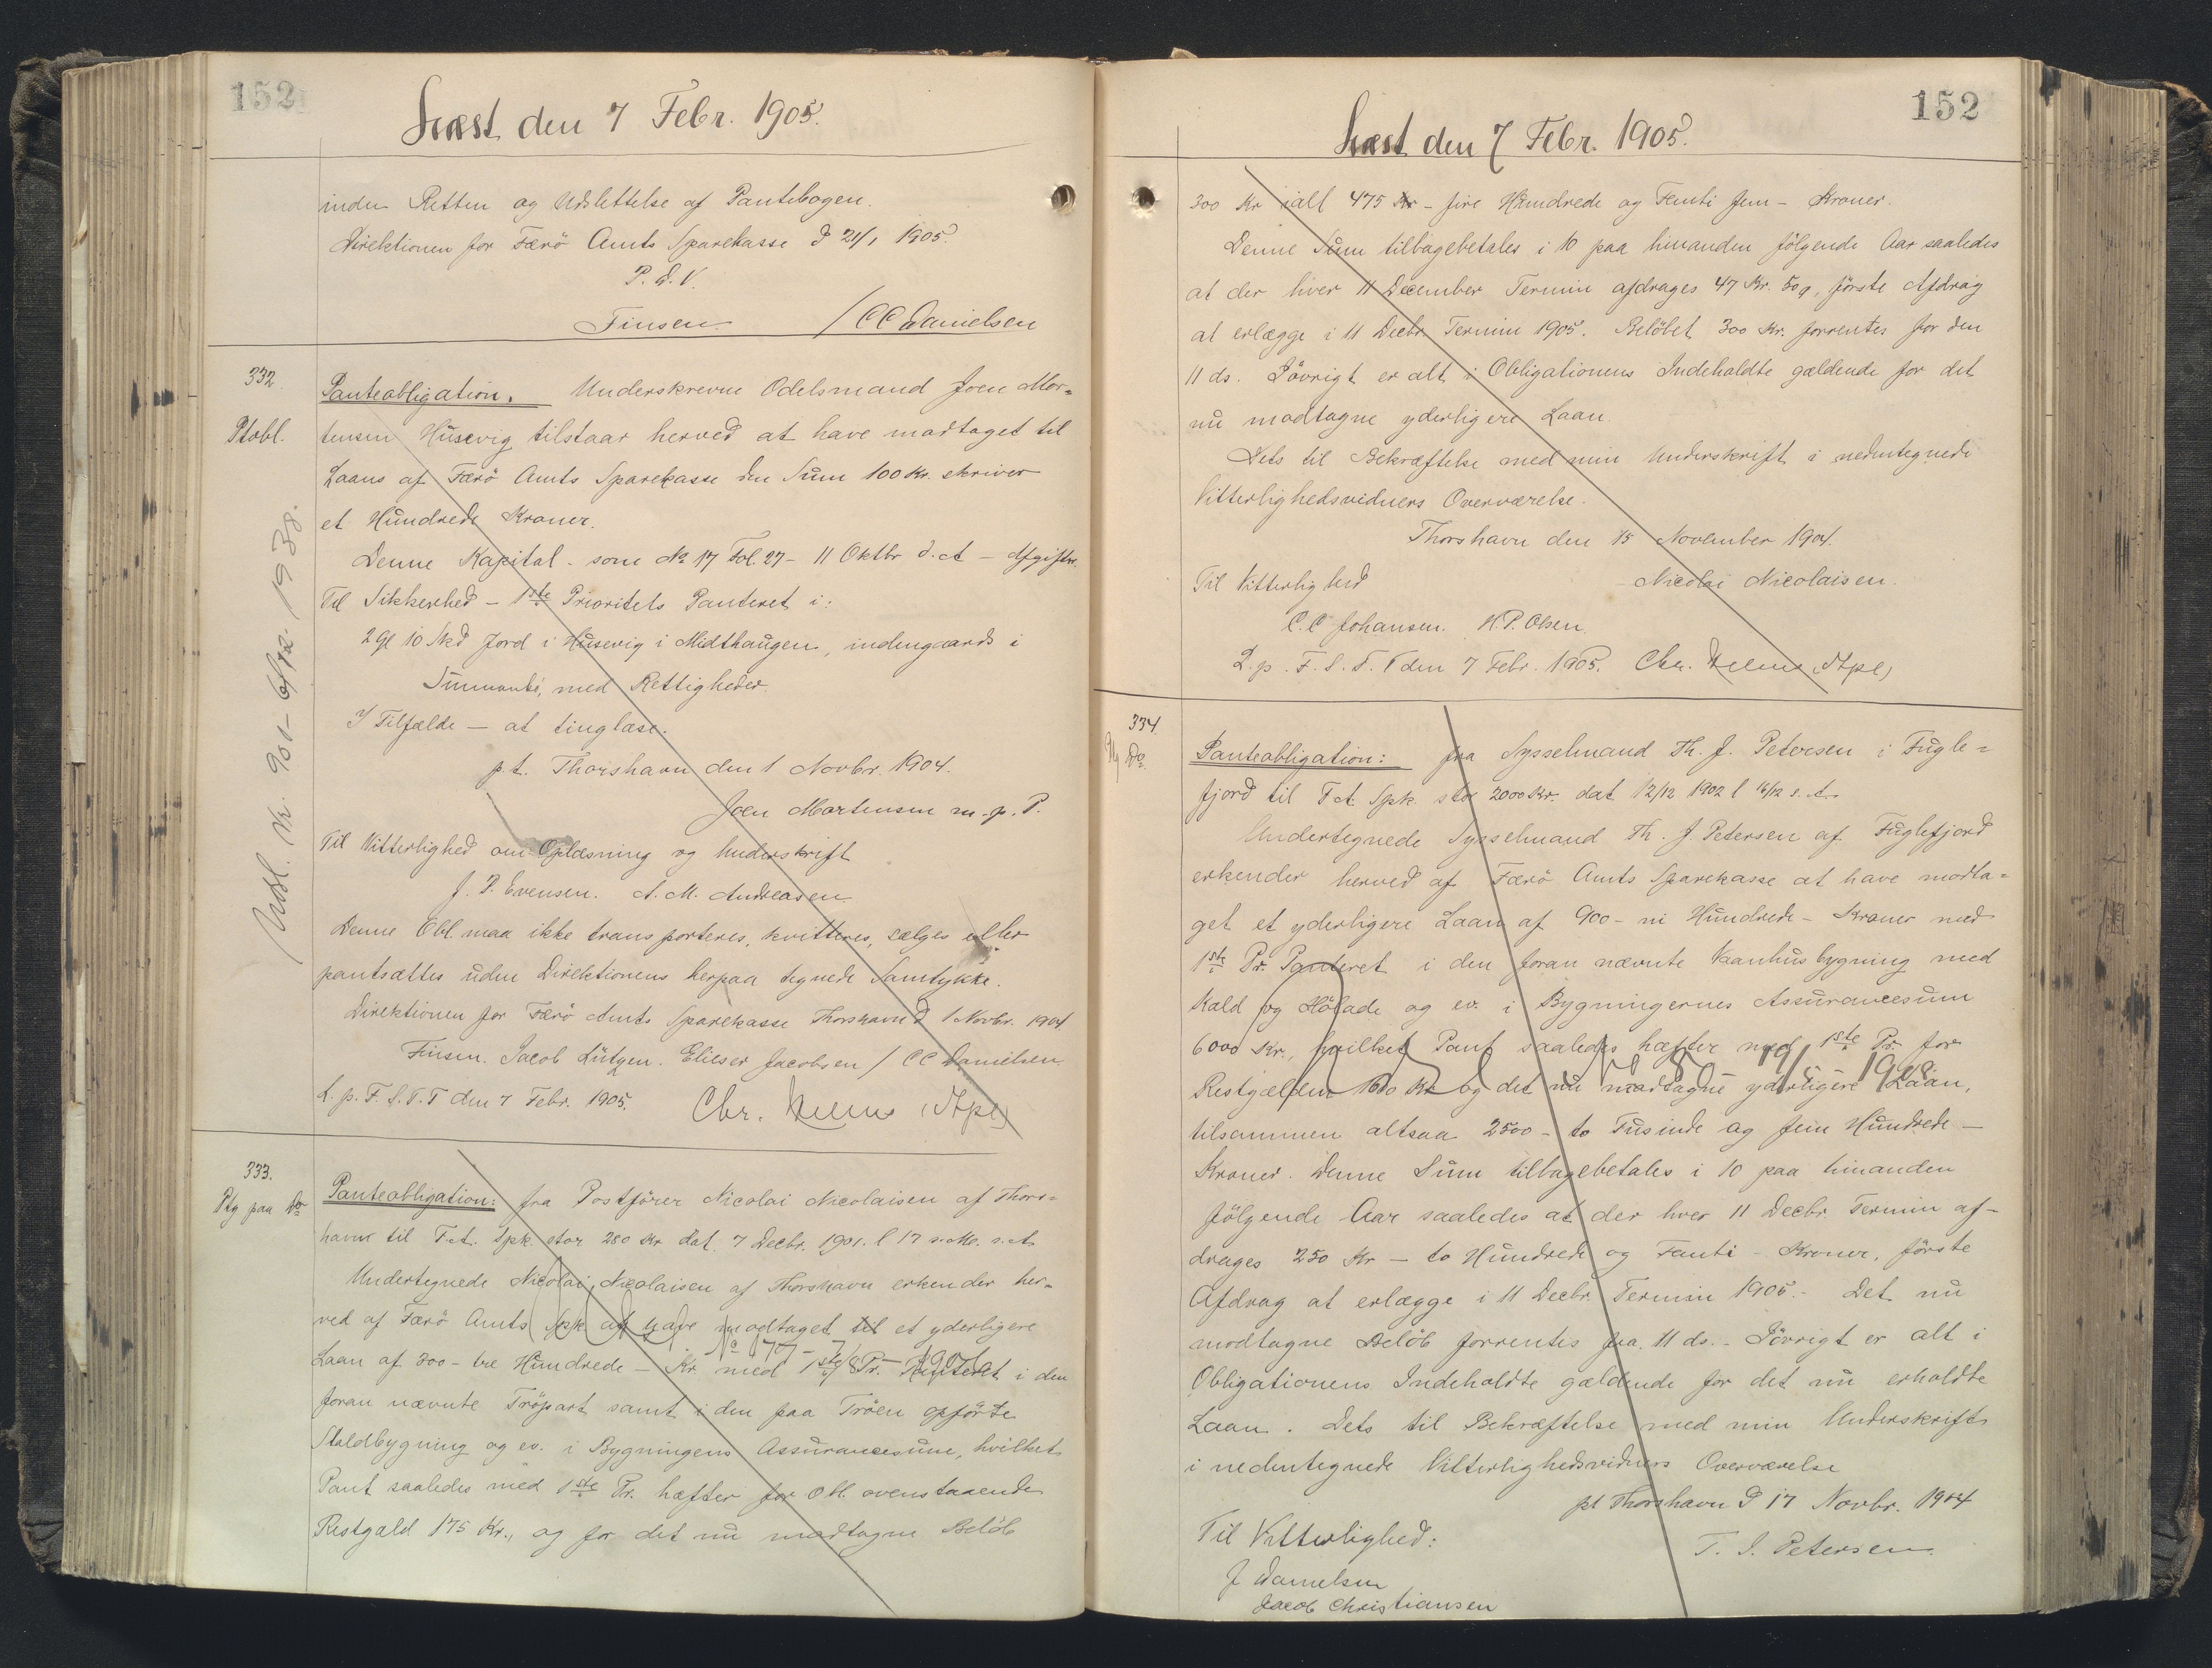 152
Læst den 7 Febr. 1905.
inden Retten og Udslettelse af Pantebogen.
Direktionen for Færö Amts Sparekasse d 21/1 1905.
P. D. V.
Finsen / CC Danielsen
332.
Ptobl.
Panteobligation. Underskrevne Odelsmand Joen Mor=
tensen Husevig tilstaar herved at have modtaget til
Laans af Færö Amts Sparekasse den Sum 100 Kr. skriver
et Hundrede Kroner.
Denne Kapital - som No 17 Fol. 27 - 11 Oktbr d. A - Afgifter.
Til Sikkerhed - 1ste Prioritets Panteret i:
2 Gl 10 Skd Jord i Husevig i Midthaugen, indengaards i
med Rettigheder.
I Tilfælde — at tinglæse.
p.t. Thorshavn den 1 Novbr. 1904.
Joen Mortensen m. p. P.
Til Vitterlighed om Oplæsning og Underskrift
J. P. Evensen. A. M. Andreasen
Denne Obl. maa ikke transporteres, kvitteres, sælges eller
pantsættes uden Direktionens herpaa tegnede Samtykke.
Direktionen for Færö Amts Sparekasse Thorshavn d 1 Novbr. 1904
Finsen. Jacob Lützen. Elieser Jacobsen / CC Danielsen
L. p. F. S. T. T den 7 Febr. 1905. Chr.
Udsl. 6/12. 1938.
333.
Ptg paa Do
Panteobligation: fra Postförer Nicolai Nicolaisen af Thors=
havn til F. A. Spk. stor 280 Kr dat. 7 Decbr. 1901. l 17 s. M. s. A.
Undertegnede Nicolai Nicolaisen af Thorshavn erkender her=
ved af Færö Amts Spk. at have modtaget til et yderligere
Laan af 300 - tre Hundrede - Kr. med 1ste Pr. Panteret i den
foran nævnte Tröpart samt i den paa Tröen opförte
Staldbygning og ev. i Bygningens Assurancesum, hvilket
Pant saaledes med 1ste Pr. hæfter for Obl. ovenstaaende
Restgæld 175 Kr., og for det nu modtagne Belöb
152
Læst den 7 Febr. 1905.
300 Kr ialt 475 Kr - fire Hundrede og Femti fem - Kroner.
Denne Sum tilbagebetales i 10 paa hinanden fölgende Aar saaledes
at der hver 11 December Termin afdrages 47 Kr. 50 , förste Afdrag
at erlægge i 11 Decbr. Termin 1905. Belöbet 300 Kr. forrentes for den
11 ds. Iövrigt er alt i Obligationens Indeholdte gældende for det
nu modtagne yderligere Laan.
Dets til Bekræftelse med min Underskrift i nedentegnede
Vitterlighedsvidners Overværelse.
Thorshavn den 15 November 1904.
Til Vitterlighed Nicolai Nicolaisen.
C. C Johansen. H. P. Olsen
L. p. F. S. T. T den 7 Febr. 1905. Chr.
334.
Do
Panteobligation: fra Sysselmand Th. J. Petersen i Fugle=
fjord til F A. Spk. stor 2000 Kr. dat 12/12 1902 l 16/12 s. A.
Undertegnede Sysselmand Th. J. Petersen af Fuglefjord
erkender herved af Færö Amts Sparekasse at have modta=
get et yderligere Laan af 900 - ni Hundrede - Kroner med
1ste Pr. Panteret i den foran nævnte Vaanhusbygning med
Kald og Hölade og ev. i Bygningernes Assurancesum
6000 Kr., hvilket Pant saaledes hæfter med 1ste Pr. for
Restgælden 1600 Kr og det nu modtagne yderligere Laan,
tilsammen altsaa 2500 - to Tusinde og fem Hundrede —
Kroner. Denne Sum tilbagebetales i 10 paa hinanden
fölgende Aar saaledes at der hver 11 Decbr. Termin af-
drages 250 Kr — to Hundrede og Femti - Kroner, förste
Afdrag at erlægge i 11 Decbr. Termin 1905. - Det nu
modtagne Belöb forrentes fra 11 ds. - Iövrigt er alt i
Obligationens Indeholdte gældende for det nu erholdte
Laan. Dets til Bekræftelse med min Underskrift
i nedentegnede Vitterlighedsvidners Overværelse
pt Thorshavn d 17 Novbr. 1904
Til Vitterlighed: T. J. Petersen.
J Danielsen
Jacob Christiansen